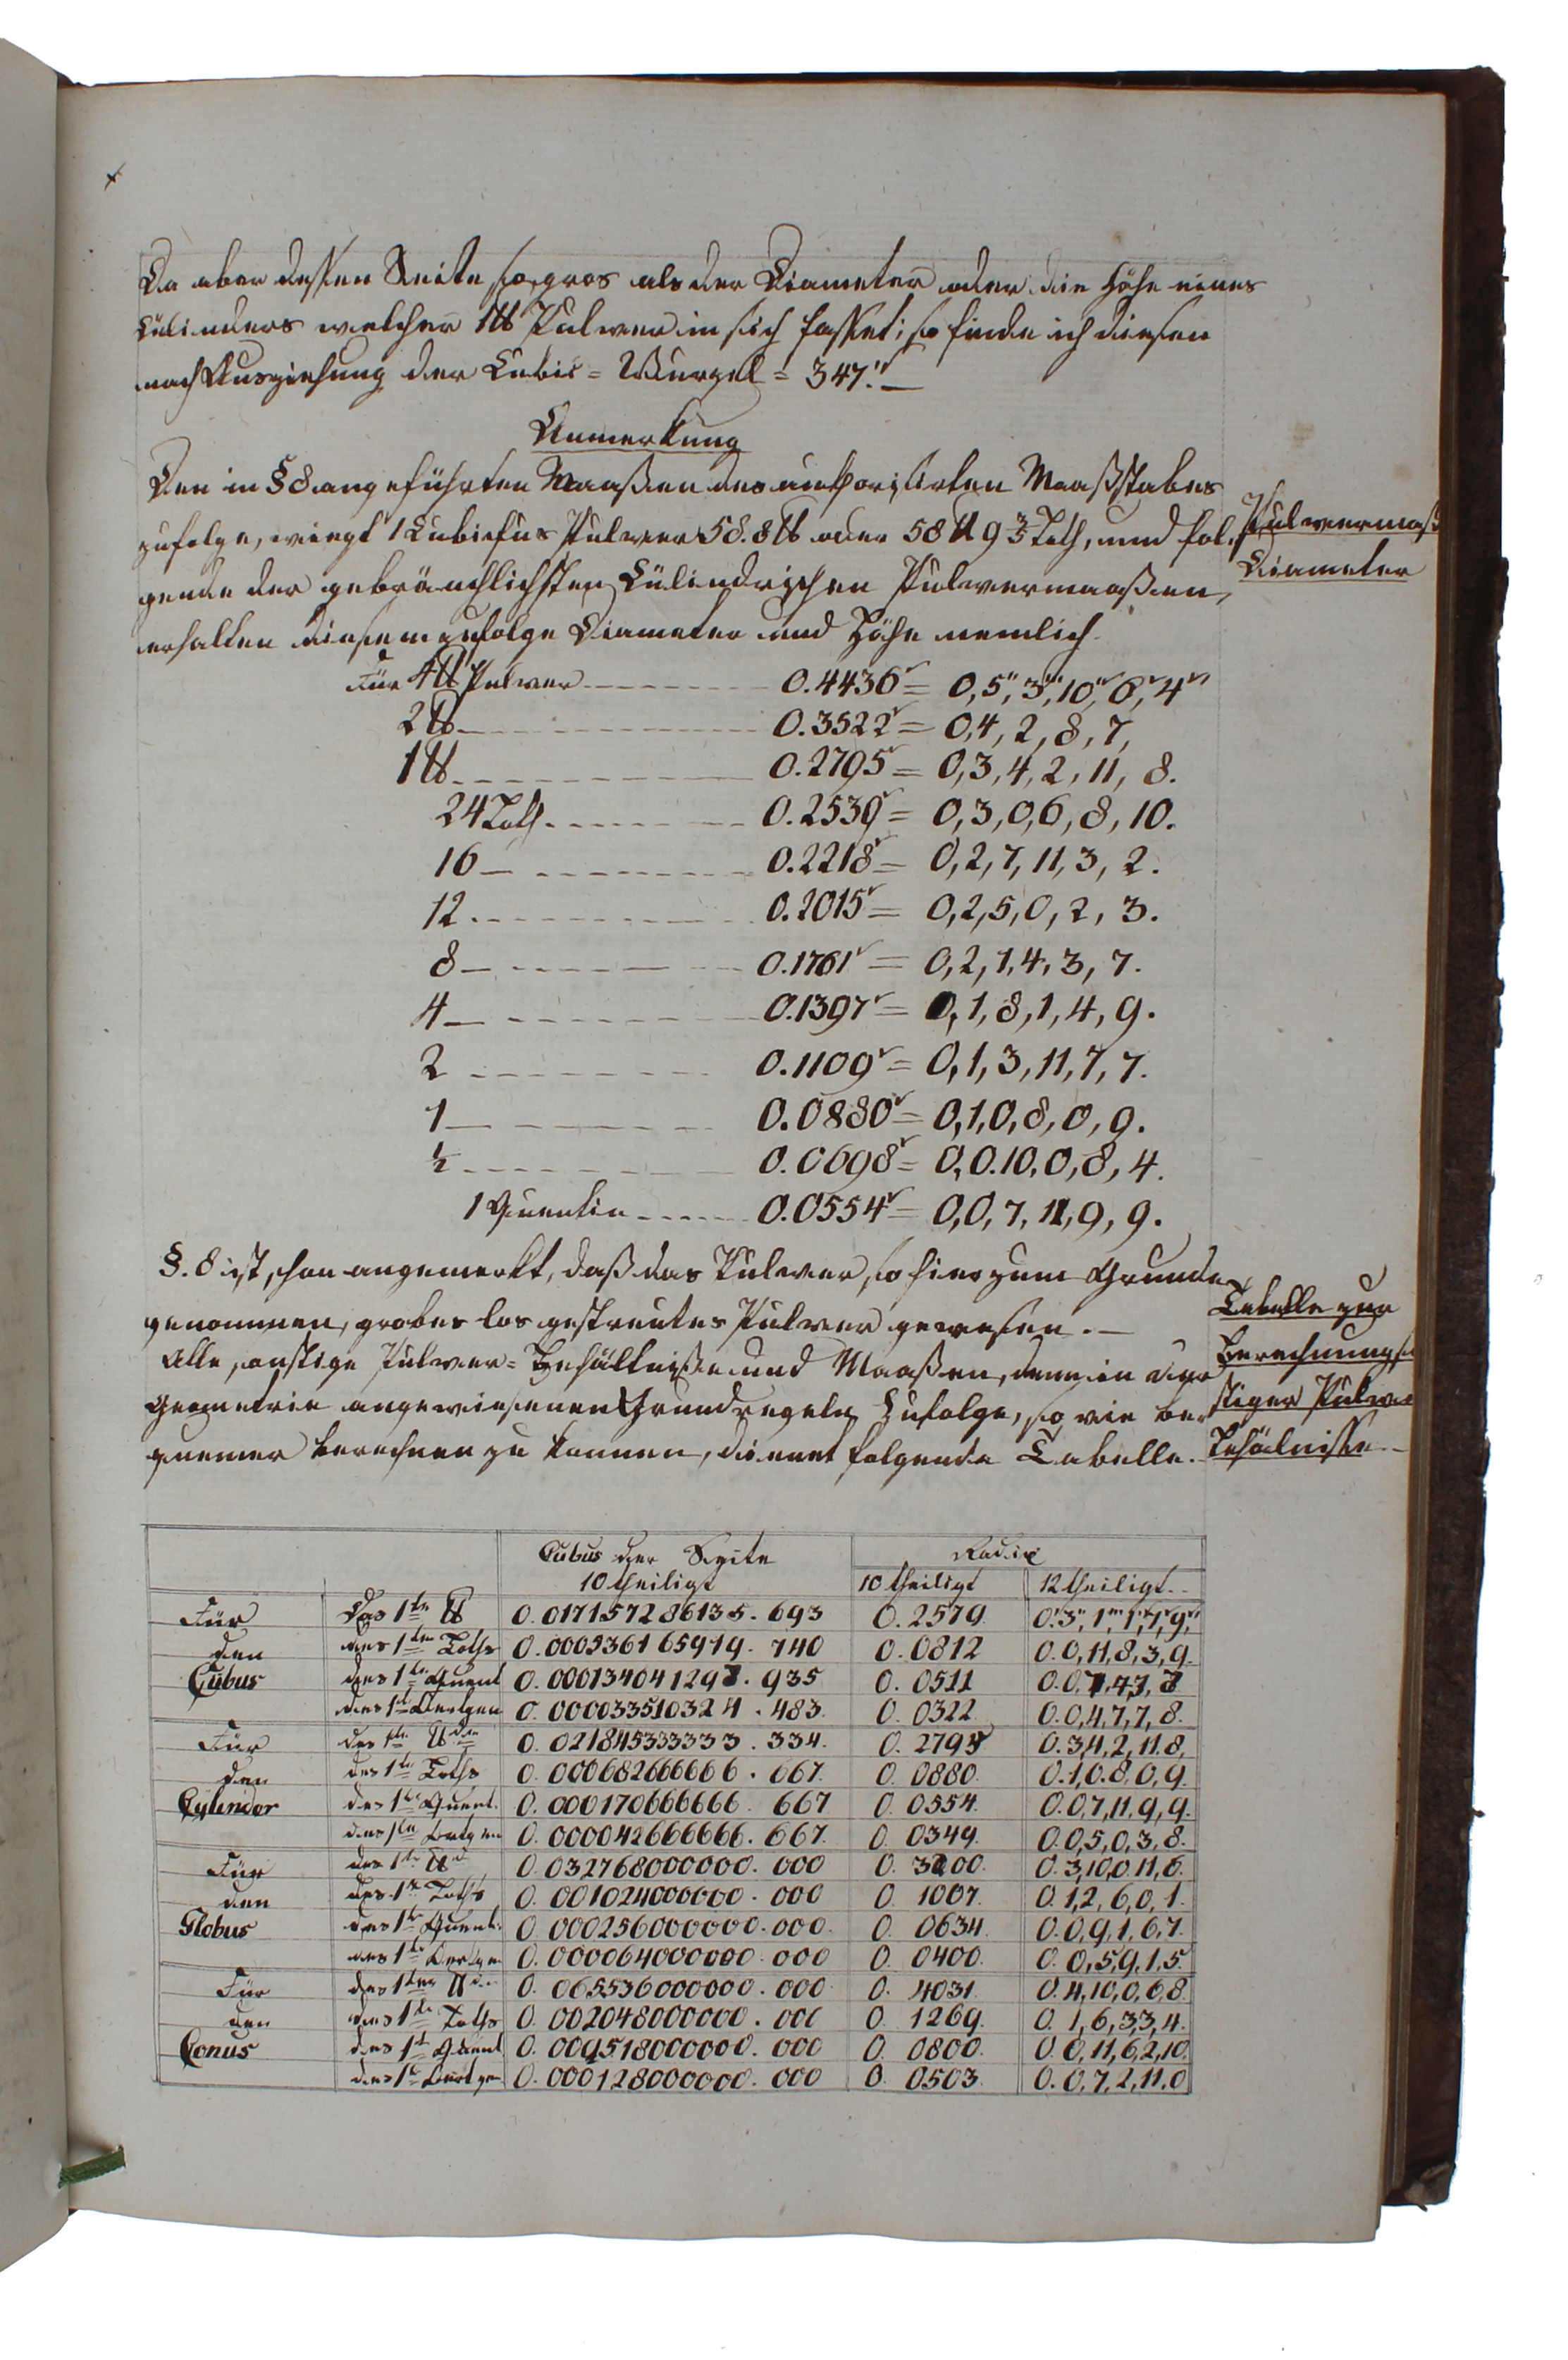 Da aber dessen Seite so gros als der Diameter oder die Höhe eines
Cülinders welcher 1 ℔ Pulver in sich fasset; so finde ich diesen
nach Ausziehung der Cubic = Wurzel = 347.‴ —
Anmerkung
Den in § 8 angeführten Maaßen des authorisirten Maaßstabes
zufolge, wiegt 1 Cubicfus Pulver 58.8 ℔ oder 58 ℔ 9 3/5 Loth, und fol-
gende der gebräuchlichsten Cülindrischen Pulvermaaßen,
erhalten diesem zufolge Diameter und Höhe nemlich.
Pulvermaß
Diameter
Für 4 ℔ Pulver 0.4436 = 0, 5, 3, 10, 6, 4
2 ℔ 0.3522 = 0, 4, 2, 8, 7,
1 ℔ 0.2795 = 0, 3, 4, 2, 11, 8.
24 Loth 0.2539 = 0, 3, 0, 6, 8, 10.
16 0.2218 = 0, 2, 7, 11, 3, 2.
12 0.2015 = 0, 2, 5, 0, 2, 3.
8 0.1761 = 0, 2, 1, 4, 3, 7.
4 0.1397 = 0, 1, 8, 1, 4, 9.
2 0.1109 = 0, 1, 3, 11, 7, 7.
1 0.0880 = 0, 1, 0, 8, 0, 9.
½ 0.0698 = 0, 0. 10, 0, 8, 4.
1 Quentin 0.0554 = 0, 0, 7, 11, 9, 9.
§. 8 ist schon angemerkt, daß das Pulver, so hier zum Grunde
genommen, grobes los gestreutes Pulver gewesen. —
Alle sonstige Pulver = Behältniße und Maaßen, denen in der
Geometrie angewiesenen Grundregeln Zufolge, so wie be-
quemer berechnen zu können, dienet folgende Tabelle.
Tabelle zur
Berechnung so
stiger Pulver
Behälnisse
Cubus der Seite Radix
10 theiligt 10 theiligt 12 theiligt
Für Das 1te ℔ 0. 017157286135. 693 0. 2579 0. 3, 1, 1, 1, 9,
den des 1ten Loths 0. 000536165919. 740 0. 0812 0. 0, 11, 8, 3, 9.
Cubus des 1te Quent 0. 000134041298. 935 0. 0511 0. 0,
des 1te 0. 000033510324. 483. 0. 0322 0. 0, 4, 7, 7, 8.
Für des 1te ℔ 0. 021845333333. 334. 0. 2795 0. 3, 4, 2, 11. 8,
den des 1te Loths 0. 000682666666. 667. 0. 0880. 0. 1, 0. 8, 0, 9.
Cylinder des 1te Quent. 0. 000170666666. 667 0. 0554. 0. 0, 7, 11, 9, 9.
des 1te 0. 000042666666. 667. 0. 0349. 0. 0, 5, 0, 3, 8.
Für des 1te ℔ 0. 032768000000. 000 0. 3200. 0. 3, 10, 0, 11, 6.
den des 1te Loths 0. 001024000000. 000 0. 1007. 0. 1, 2, 6, 0, 1.
Globus des 1te Quent. 0. 000256000000. 000. 0. 0634. 0. 0, 9, 1, 6, 7.
des 1te 0. 000064000000. 000 0. 0400. 0. 0, 5, 9, 1, 5.
Für des 1ten ℔ 0. 065536000000. 000 0. 4031. 0. 4, 10, 0, 6, 8.
den des 1te Loths 0. 002048000000. 000 0. 1269. 0. 1, 6, 3, 3, 4.
Conus des 1te Quent 0. 000518000000. 000 0. 0800. 0. 0, 11, 6, 2, 10.
des 1te 0. 000128000000. 000 0. 0503. 0. 0, 7, 2, 11, 0